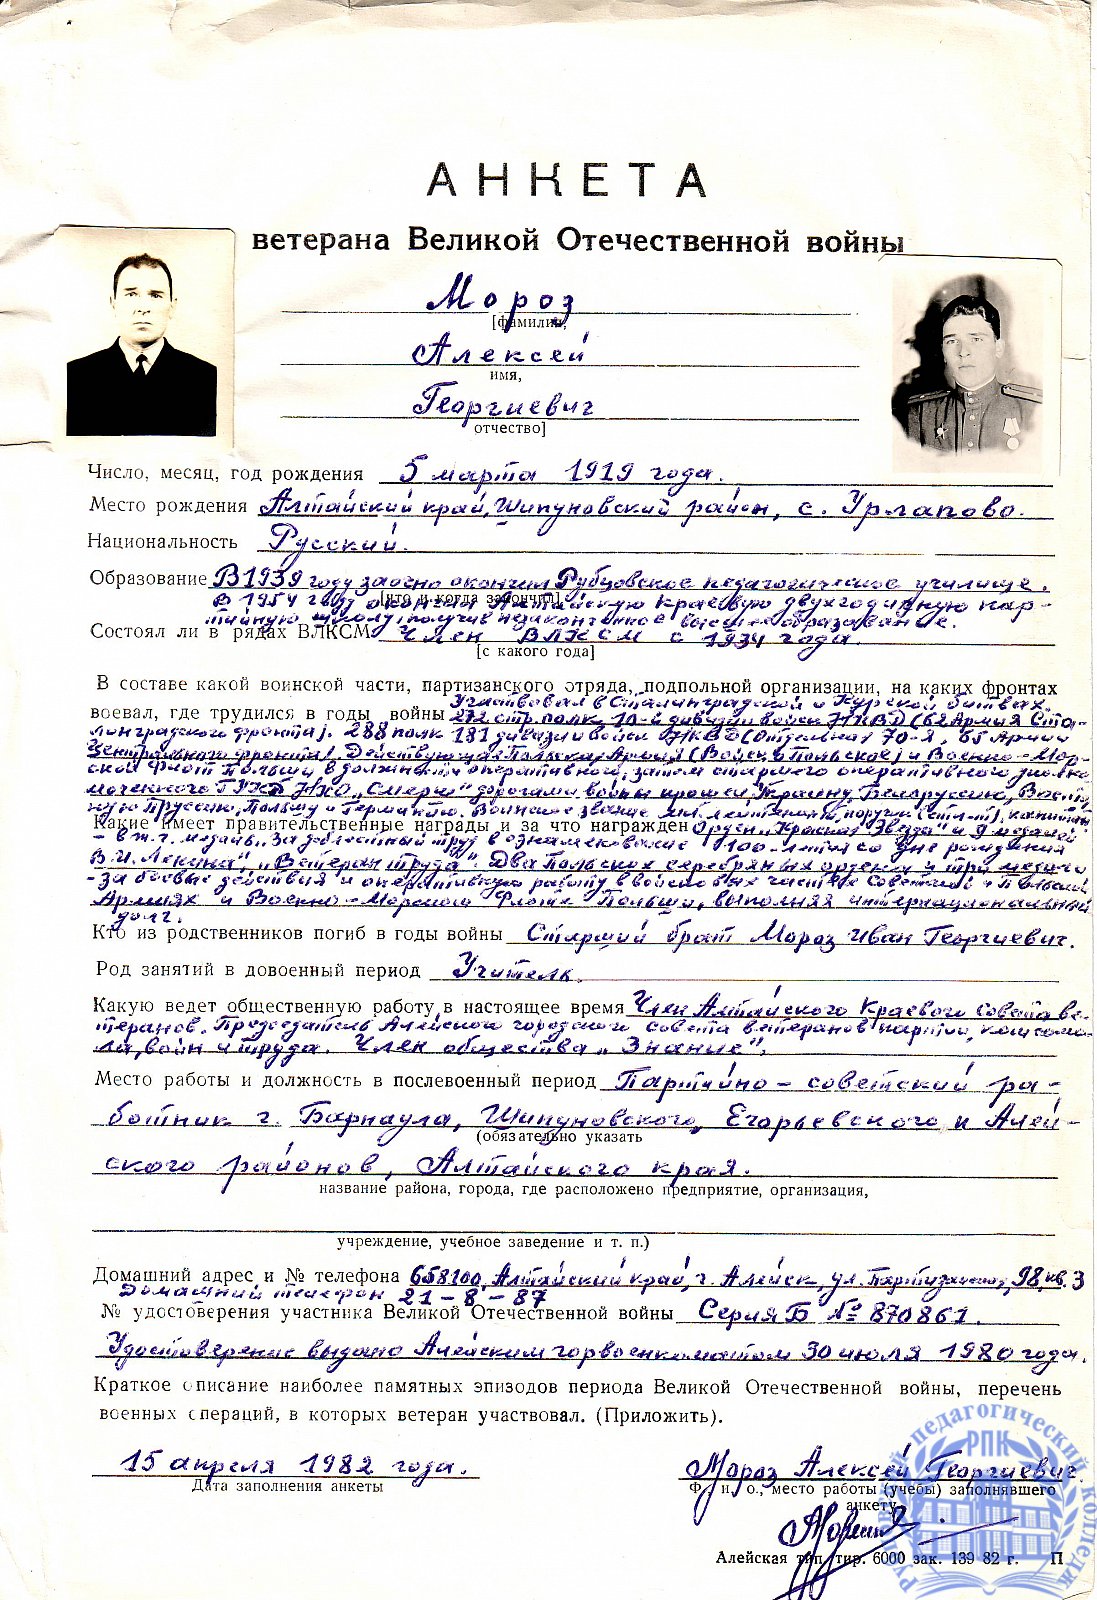 АНКЕТА
ветерана Великой Отечественной войны
Мороз
[фамилия,
Алексей
имя,
Георгиевич
отчество]
Число, месяц, год рождения 5 марта 1919 года.
Место рождения Алтайский край, Шипуновский район, с. Урлапово.
Национальность Русский.
Образование В 1939 году заочно окончил Рубцовское педагогическое училище.
[что и когда закончил]
В 1954 году окончил Алтайскую краевую двухгодичную пар-
тийную школу, получив незаконченное высшее образование.
Состоял ли в рядах ВЛКСМ Член ВЛКСМ с 1934 года.
[с какого года]
В составе какой воинской части, партизанского отряда, подпольной организации, на каких фронтах
Участвовал в Сталинградской и Курской битвах.
воевал, где трудился в годы войны 272 стр. полк 10-й дивизии войск НКВД (62 Армия Ста-
линградского фронта). 288 полк 181 дивизии войск НКВД (Отдельная 70-я, 65 Армии
Центрального фронта). Действующая Польская Армия (Войско Польское) и Военно-Мор-
ской Флот Польши в должности оперативного, затем старшего оперативного уполно-
моченного ГУКР НКО „Смерш" дорогами войны прошел Украину, Белоруссию, Восточ-
ную Пруссию, Польшу и Германию. Воинское звание мл. лейтенант, поручик (ст. л-т), капитан
Какие имеет правительственные награды и за что награжден Орден „Красная Звезда" и 9 медалей
- в т.ч. медаль „За доблестный труд в ознаменование 100-летия со дня рождения
В.И. Ленина", „Ветеран труда". Два Польских серебряных ордена и три медали
- за боевые действия и оперативную работу в войсковых частях Советской и Польской
Армиях и Военно-Морского Флота Польши, выполняя интернациональный
долг.
Кто из родственников погиб в годы войны Старший брат Мороз Иван Георгиевич.
Род занятий в довоенный период Учитель.
Какую ведет общественную работу в настоящее время Член Алтайского Краевого совета ве-
теранов. Председатель Алейского городского совета ветеранов партии, комсомо-
ла, войн и труда. Член общества „Знание".
Место работы и должность в послевоенный период Партийно-советский ра-
ботник г. Барнаула, Шипуновского, Егорьевского и Алей-
(обязательно указать
ского районов, Алтайского края.
название района, города, где расположено предприятие, организация,
учреждение, учебное заведение и т. п.)
Домашний адрес и № телефона 658100, Алтайский край, г. Алейск, ул. Партизанская, 98, кв. 3
Домашний телефон 21-8-87
№ удостоверения участника Великой Отечественной войны Серия Б № 870861.
Удостоверение выдано Алейским горвоенкоматом 30 июля 1980 года.
Краткое описание наиболее памятных эпизодов периода Великой Отечественной войны, перечень
военных операций, в которых ветеран участвовал. (Приложить).
15 апреля 1982 года.
Дата заполнения анкеты
Мороз Алексей Георгиевич.
Ф., и., о., место работы (учебы) заполнявшего
анкету
Алейская тип. тир. 6000 зак. 139 82 г. П
РПК
педагогический колледж